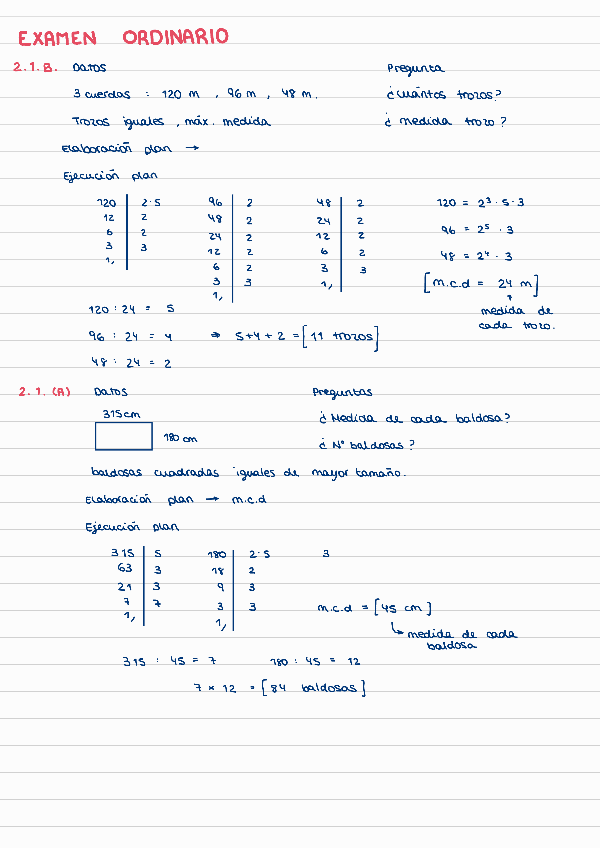 EXAMEN ORDINARIO
2.1.B. Datos Pregunta
3 cuerdas : 120 m , 96 m , 48 m. ¿cuántos trozos?
Trozos iguales , máx. medida ¿ medida trozo ?
Elaboración plan →
Ejecución plan
120 | 2·5 96 | 2 48 | 2 120 = 2³ · 5 · 3
12 | 2 48 | 2 24 | 2 96 = 2⁵ · 3
6 | 2 24 | 2 12 | 2
3 | 3 12 | 2 6 | 2 48 = 2⁴ · 3
1, 6 | 2 3 | 3
3 | 3 1, [m.c.d = 24 m]
1, medida de
120 : 24 = 5 cada trozo.
96 : 24 = 4 ⇒ 5+4+2 = [11 trozos]
48 : 24 = 2
2.1.(A) Datos Preguntas
315cm ¿ Medida de cada baldosa?
180 cm ¿ Nº baldosas ?
baldosas cuadradas iguales de mayor tamaño.
Elaboración plan → m.c.d
Ejecución plan
315 | 5 180 | 2·5 3
63 | 3 18 | 2
21 | 3 9 | 3
7 | 7 3 | 3 m.c.d = [45 cm]
1, 1,
medida de cada
baldosa
315 : 45 = 7 180 : 45 = 12
7 × 12 = [84 baldosas]